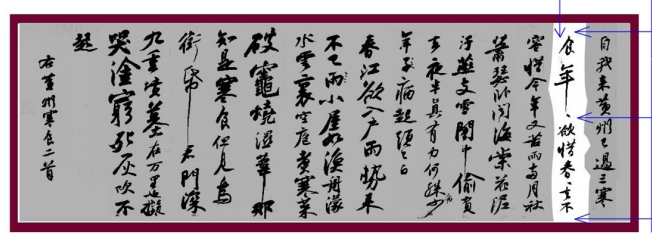 自我来黄州已過三寒
食年〻欲惜春〻去不
容惜今年又苦雨兩月秋
蕭瑟卧聞海棠花泥
汙燕支雪闇中偷負
去夜半真有力何殊少
年子病起頭已白
春江欲入户雨勢来
不已雨小屋如漁舟濛
水雲裏空庖煮寒菜
破竈燒濕葦那
知是寒食但見烏
銜帋君門深
九重墳墓在万里也擬
哭塗窮死灰吹不
起
右黄州寒食二首